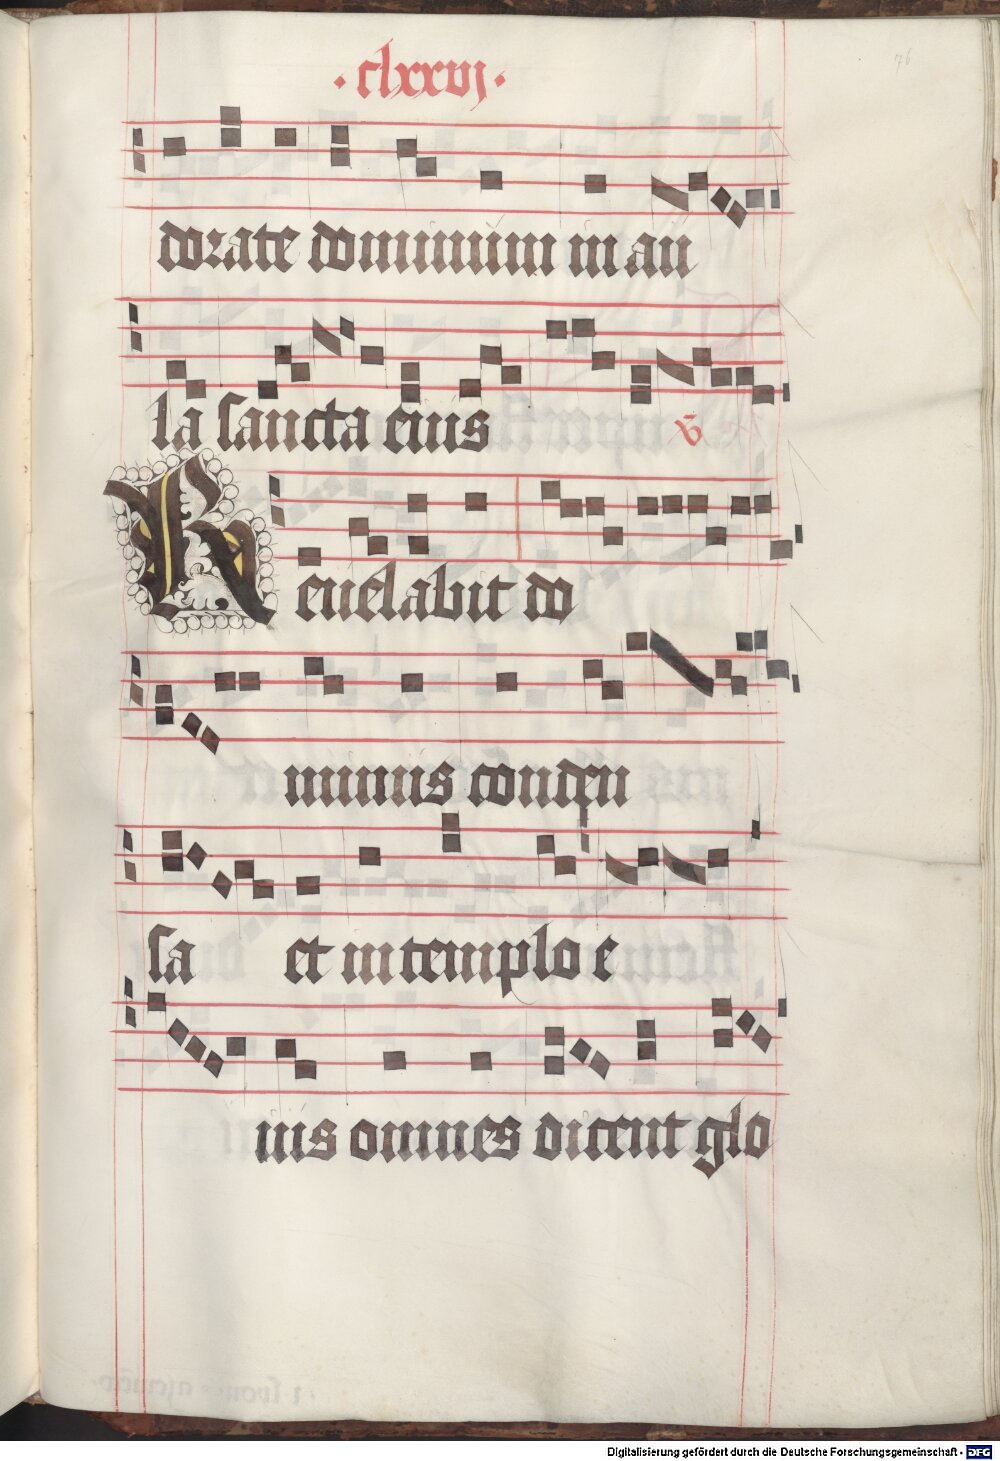 · clxxvj ·
76
dorate dominum in au
la sancta eius
v̄
Reuelabit do
minus conden
sa et in templo e
ius omnes dicent glo
Digitalisierung gefördert durch die Deutsche Forschungsgemeinschaft - DFG